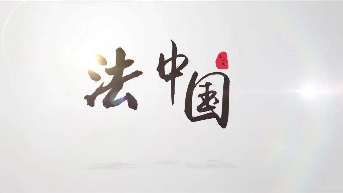 法中国